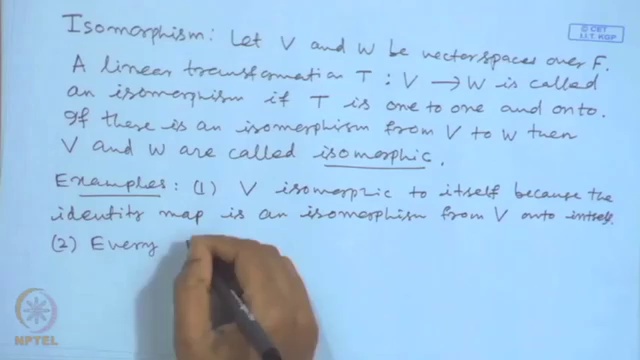 © CET
I.I.T. KGP
Isomorphism: Let V and W be vector spaces over F.
A linear transformation T : V → W is called
an isomorphism if T is one to one and onto.
If there is an isomorphism from V to W then
V and W are called isomorphic.
Examples: (1) V isomorphic to itself because the
identity map is an isomorphism from V onto intself.
(2) Every
NPTEL